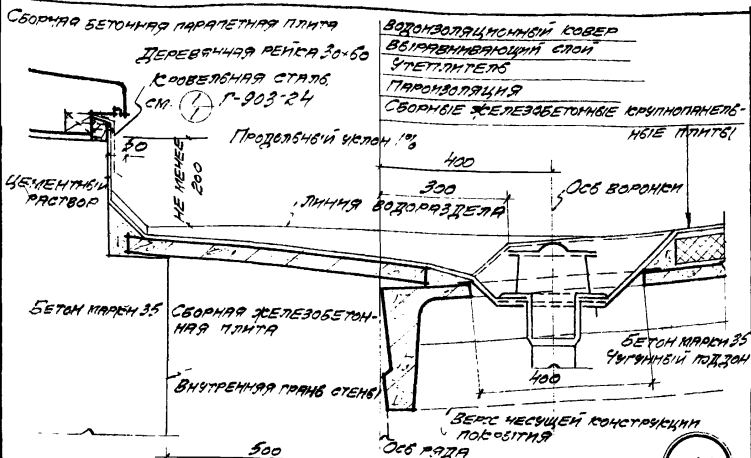 Сборная бетонная парапетная плита
Деревянная рейка 30×60
Кровельная сталь
см. 1 Г-903-24
Водоизоляционный ковер
Выравнивающий слой
Утеплитель
Пароизоляция
Сборные железобетонные крупнопанель-
ные плиты
50
Продольный уклон 1%
не менее
200
400
300
Цементный
раствор
Линия водораздела
Ось воронки
Бетон марки 35
Сборная железобетон-
ная плита
Бетон марки 35
Чугунный поддон
400
Внутренняя грань стены
Верх несущей конструкции
покрытия
500
Ось ряда